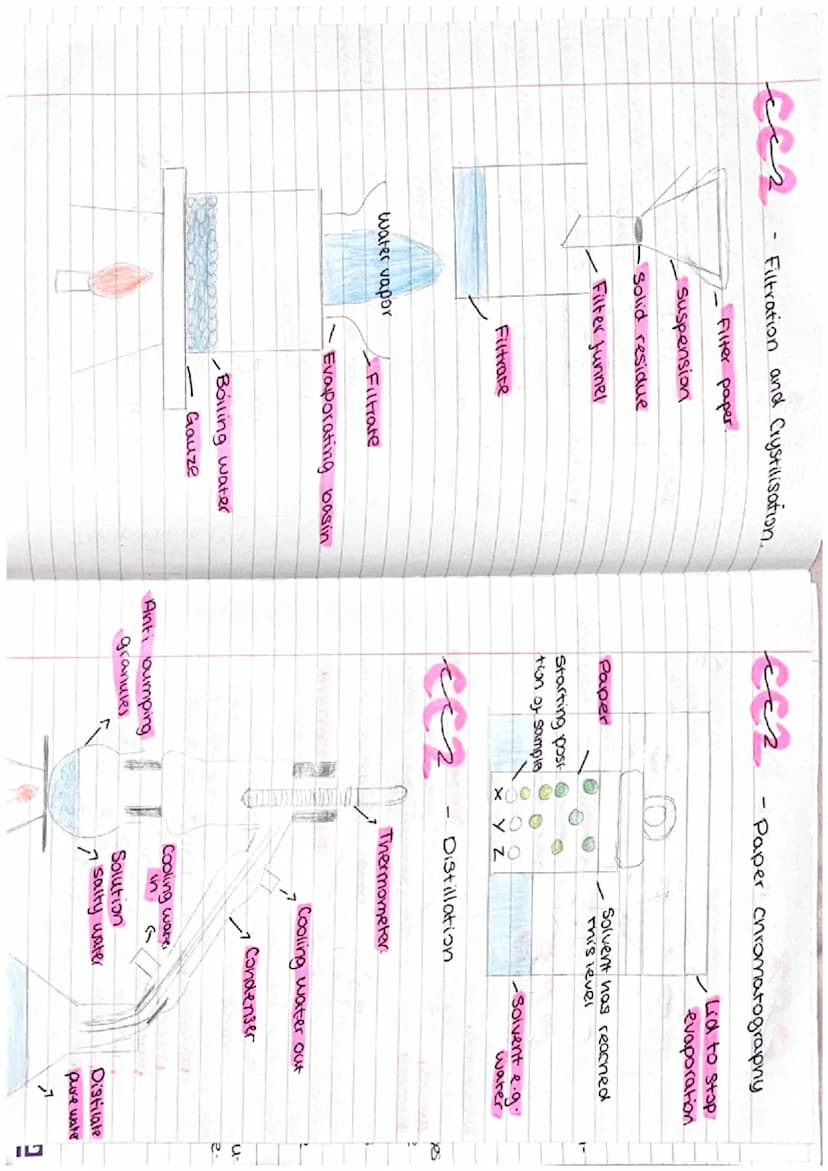 CC2 - Filtration and Crystilisation.
Filter paper.
Suspension
Solid residue
Filter funnel
Filtrate
Water vapor
Filtrate
Evaporating basin
Boiling water
Gauze
CC2 - Paper chromatography
Lid to stop
evaporation
Solvent has reached
this level
Paper
Starting posi
tion of sample
X Y Z
Solvent e.g.
water
CC2 - Distillation
Thermometer
Cooling water out
Condenser
Cooling water
in
Anti bumping
granules
Solution
salty water
Distilate
pure wate